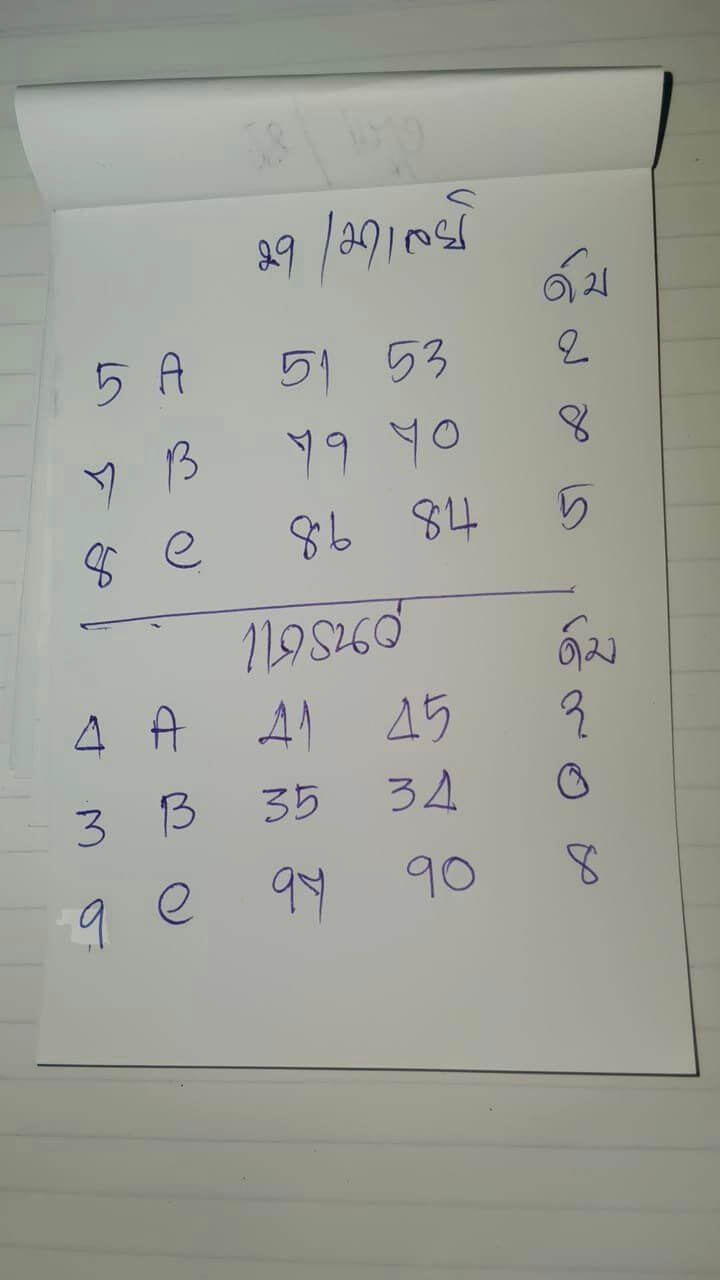 29/มาเลย์
ดับ
5 A 51 53 2
7 B 79 70 8
8 C 86 84 5
ดับ
4 A 41 45 3
3 B 35 34 0
9 C 97 90 8